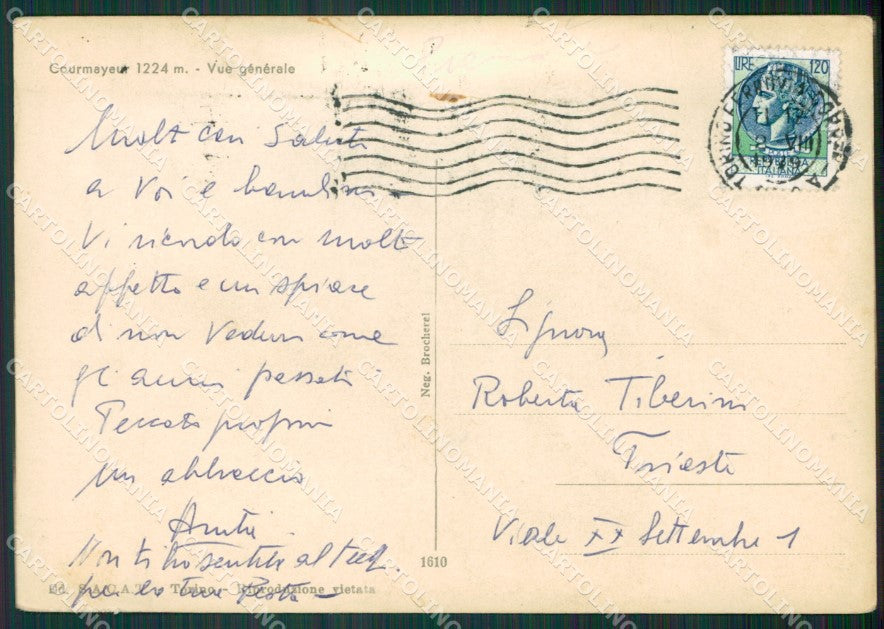 Courmayeur 1224 m. - Vue générale
Molti cari Saluti
a Voi e bambini
Vi ricordo con molto
affetto e mi spiace
di non Vedervi come
gli anni passati
Peccato proprio
un abbraccio
Non ti ho sentita al tel.
per la tua Festa -
Ed. S.A.C.A.T. - Torino - Riproduzione vietata
Neg. Brocherel
1610
LIRE 120
POSTE
ITALIANA
TORINO
VIII
Signora
Roberta Tiberini
Trieste
Viale XX Settembre 1
CARTOLINOMANIA